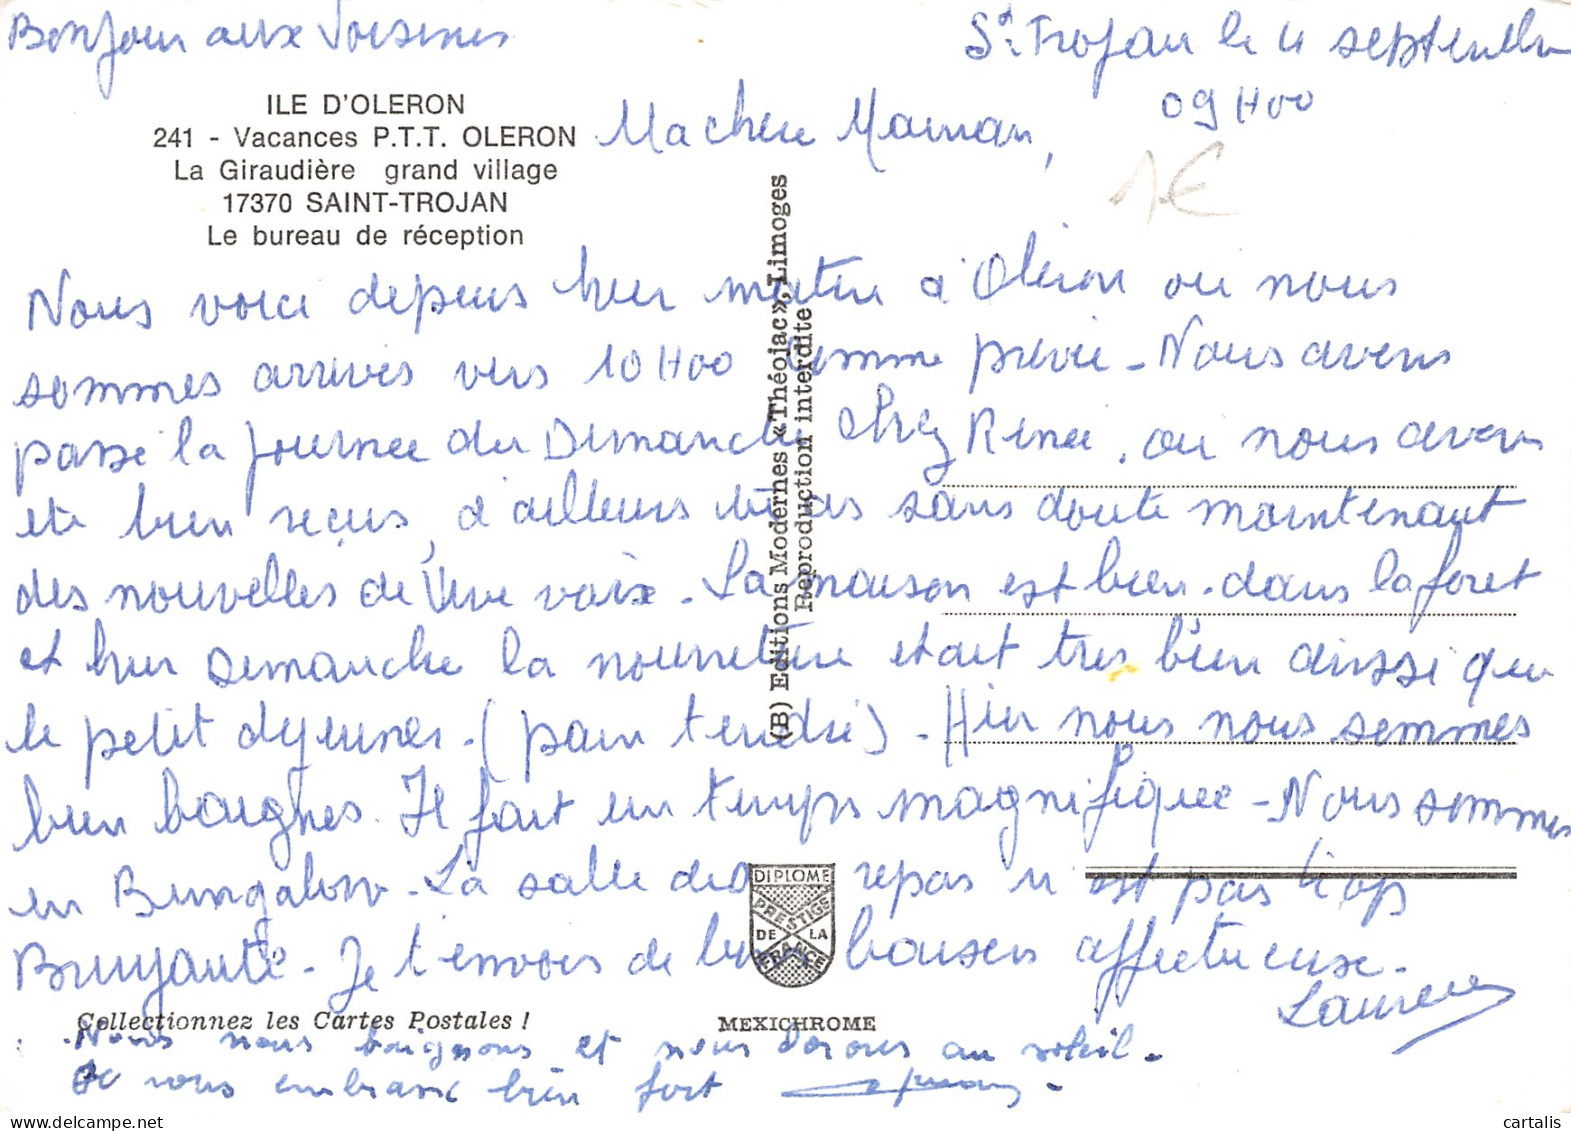 Bonjour aux Voisines
St Trojan le 4 septembre
09H00
ILE D'OLERON
241 - Vacances P.T.T. OLERON
La Giraudière grand village
17370 SAINT-TROJAN
Le bureau de réception
Ma chere Maman,
1€
Nous voici depuis hier matin a Oleron ou nous
sommes arrivés vers 10H00 comme prévu - Nous avons
passé la journee du Dimanche chez Renee, ou nous avons
ete bien recus, d'ailleurs tu as sans doute maintenant
des nouvelles de Vive voix. La maison est bien dans la foret
et hier Dimanche la nourriture etait tres bien aussi que
le petit dejeuner. (pain tendre). Hier nous nous sommes
bien baignes. Il fait un temps magnifique - Nous sommes
en Bungalow. La salle de repas n'est pas trop
Bruyante - Je t'envois de bons baisers affectueuse.
Laurence
(B) Editions Modernes « Théojac », Limoges
Reproduction interdite
DIPLOME
PRESTIGE
DE LA
FRANCE
Collectionnez les Cartes Postales !
MEXICHROME
Nous nous baignons et nous dorons au soleil.
Je vous embrasse bien fort
cartalis.com